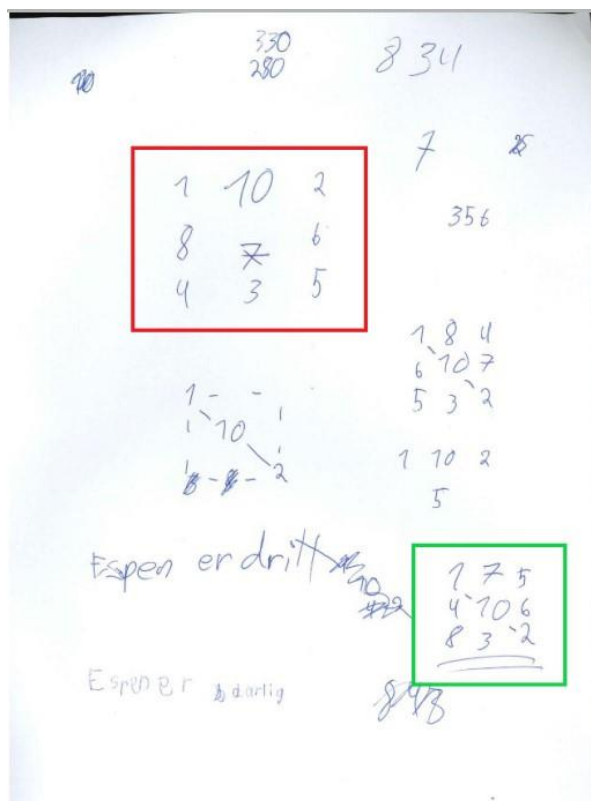 330
280
834
7
356
1 10 2
8 7 6
4 3 5
1 8 4
6 10 7
5 3 2
1 - -
10
2
1 10 2
5
Espen er dritt
1 7 5
4 10 6
8 3 2
Espen er dårlig